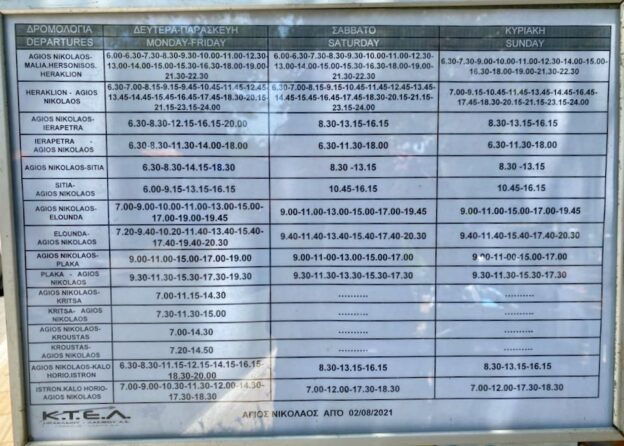 ΔΡΟΜΟΛΟΓΙΑ ΔΕΥΤΕΡΑ-ΠΑΡΑΣΚΕΥΗ ΣΑΒΒΑΤΟ ΚΥΡΙΑΚΗ
DEPARTURES MONDAY-FRIDAY SATURDAY SUNDAY
AGIOS NIKOLAOS-
MALIA.HERSONISOS.
HERAKLION
6.00-6.30-7.30-8.30-9.30-10.00-11.00-12.30-
13.00-14.00-15.00-15.30-16.30-18.00-19.00-
21.30-22.30
6.00-6.30-7.30-8.30-9.30-10.00-11.00-12.30-
13.00-14.00-15.00-15.30-16.30-18.00-19.00-
21.30-22.30
6.30-7.30-9.00-10.00-11.00-12.30-14.00-15.00-
16.30-18.00-19.00-21.30-22.30
HERAKLION - AGIOS
NIKOLAOS
6.30-7.00-8.15-9.15-9.45-10.45-11.45-12.45-
13.45-14.45-15.45-16.45-17.45-18.30-20.15-
21.15-23.15-24.00
6.30-7.00-8.15-9.15-10.45-11.45-12.45-13.45-
14.45-15.45-16.45-17.45-18.30-20.15-21.15-
23.15-24.00
7.00-9.15-10.45-11.45-13.45-14.45-16.45-
17.45-18.30-20.15-21.15-23.15-24.00
AGIOS NIKOLAOS-
IERAPETRA
6.30-8.30-12.15-16.15-20.00
8.30-13.15-16.15
8.30-13.15-16.15
IERAPETRA -
AGIOS NIKOLAOS
6.30-8.30-11.30-14.00-18.00
6.30-11.30-18.00
6.30-11.30-18.00
AGIOS NIKOLAOS-SITIA
6.30-8.30-14.15-18.30
8.30 -13.15
8.30 -13.15
SITIA-
AGIOS NIKOLAOS
6.00-9.15-13.15-16.15
10.45-16.15
10.45-16.15
AGIOS NIKOLAOS-
ELOUNDA
7.00-9.00-10.00-11.00-13.00-15.00-
17.00-19.00-19.45
9.00-11.00-13.00-15.00-17.00-19.45
9.00-11.00-13.00-15.00-17.00-19.45
ELOUNDA-
AGIOS NIKOLAOS
7.20-9.40-10.20-11.40-13.40-15.40-
17.40-19.40-20.30
9.40-11.40-13.40-15.40-17.40-20.30
9.40-11.40-13.40-15.40-17.40-20.30
AGIOS NIKOLAOS-
PLAKA
9.00-11.00-15.00-17.00-19.00
9.00-11.00-13.00-15.00-17.00
9.00-11.00-15.00-17.00
PLAKA - AGIOS
NIKOLAOS
9.30-11.30-15.30-17.30-19.30
9.30-11.30-13.30-15.30-17.30
9.30-11.30-15.30-17.30
AGIOS NIKOLAOS-
KRITSA
7.00-11.15-14.30
..........
..........
KRITSA- AGIOS
NIKOLAOS
7.30-11.30-15.00
..........
..........
AGIOS NIKOLAOS-
KROUSTAS
7.00-14.30
..........
..........
KROUSTAS-
AGIOS NIKOLAOS
7.20-14.50
..........
..........
AGIOS NIKOLAOS-KALO
HORIO.ISTRON
6.30-8.30-11.15-12.15-14.15-16.15-
18.30-20.00
8.30-13.15-16.15
8.30-13.15-16.15
ISTRON.KALO HORIO-
AGIOS NIKOLAOS
7.00-9.00-10.30-11.30-12.00-14.30-
17.30-18.30
7.00-12.00-17.30-18.30
7.00-12.00-17.30-18.30
Κ.Τ.Ε.Λ.
ΗΡΑΚΛΕΙΟΥ - ΛΑΣΙΘΙΟΥ Α.Ε.
ΑΓΙΟΣ ΝΙΚΟΛΑΟΣ ΑΠΌ 02/08/2021